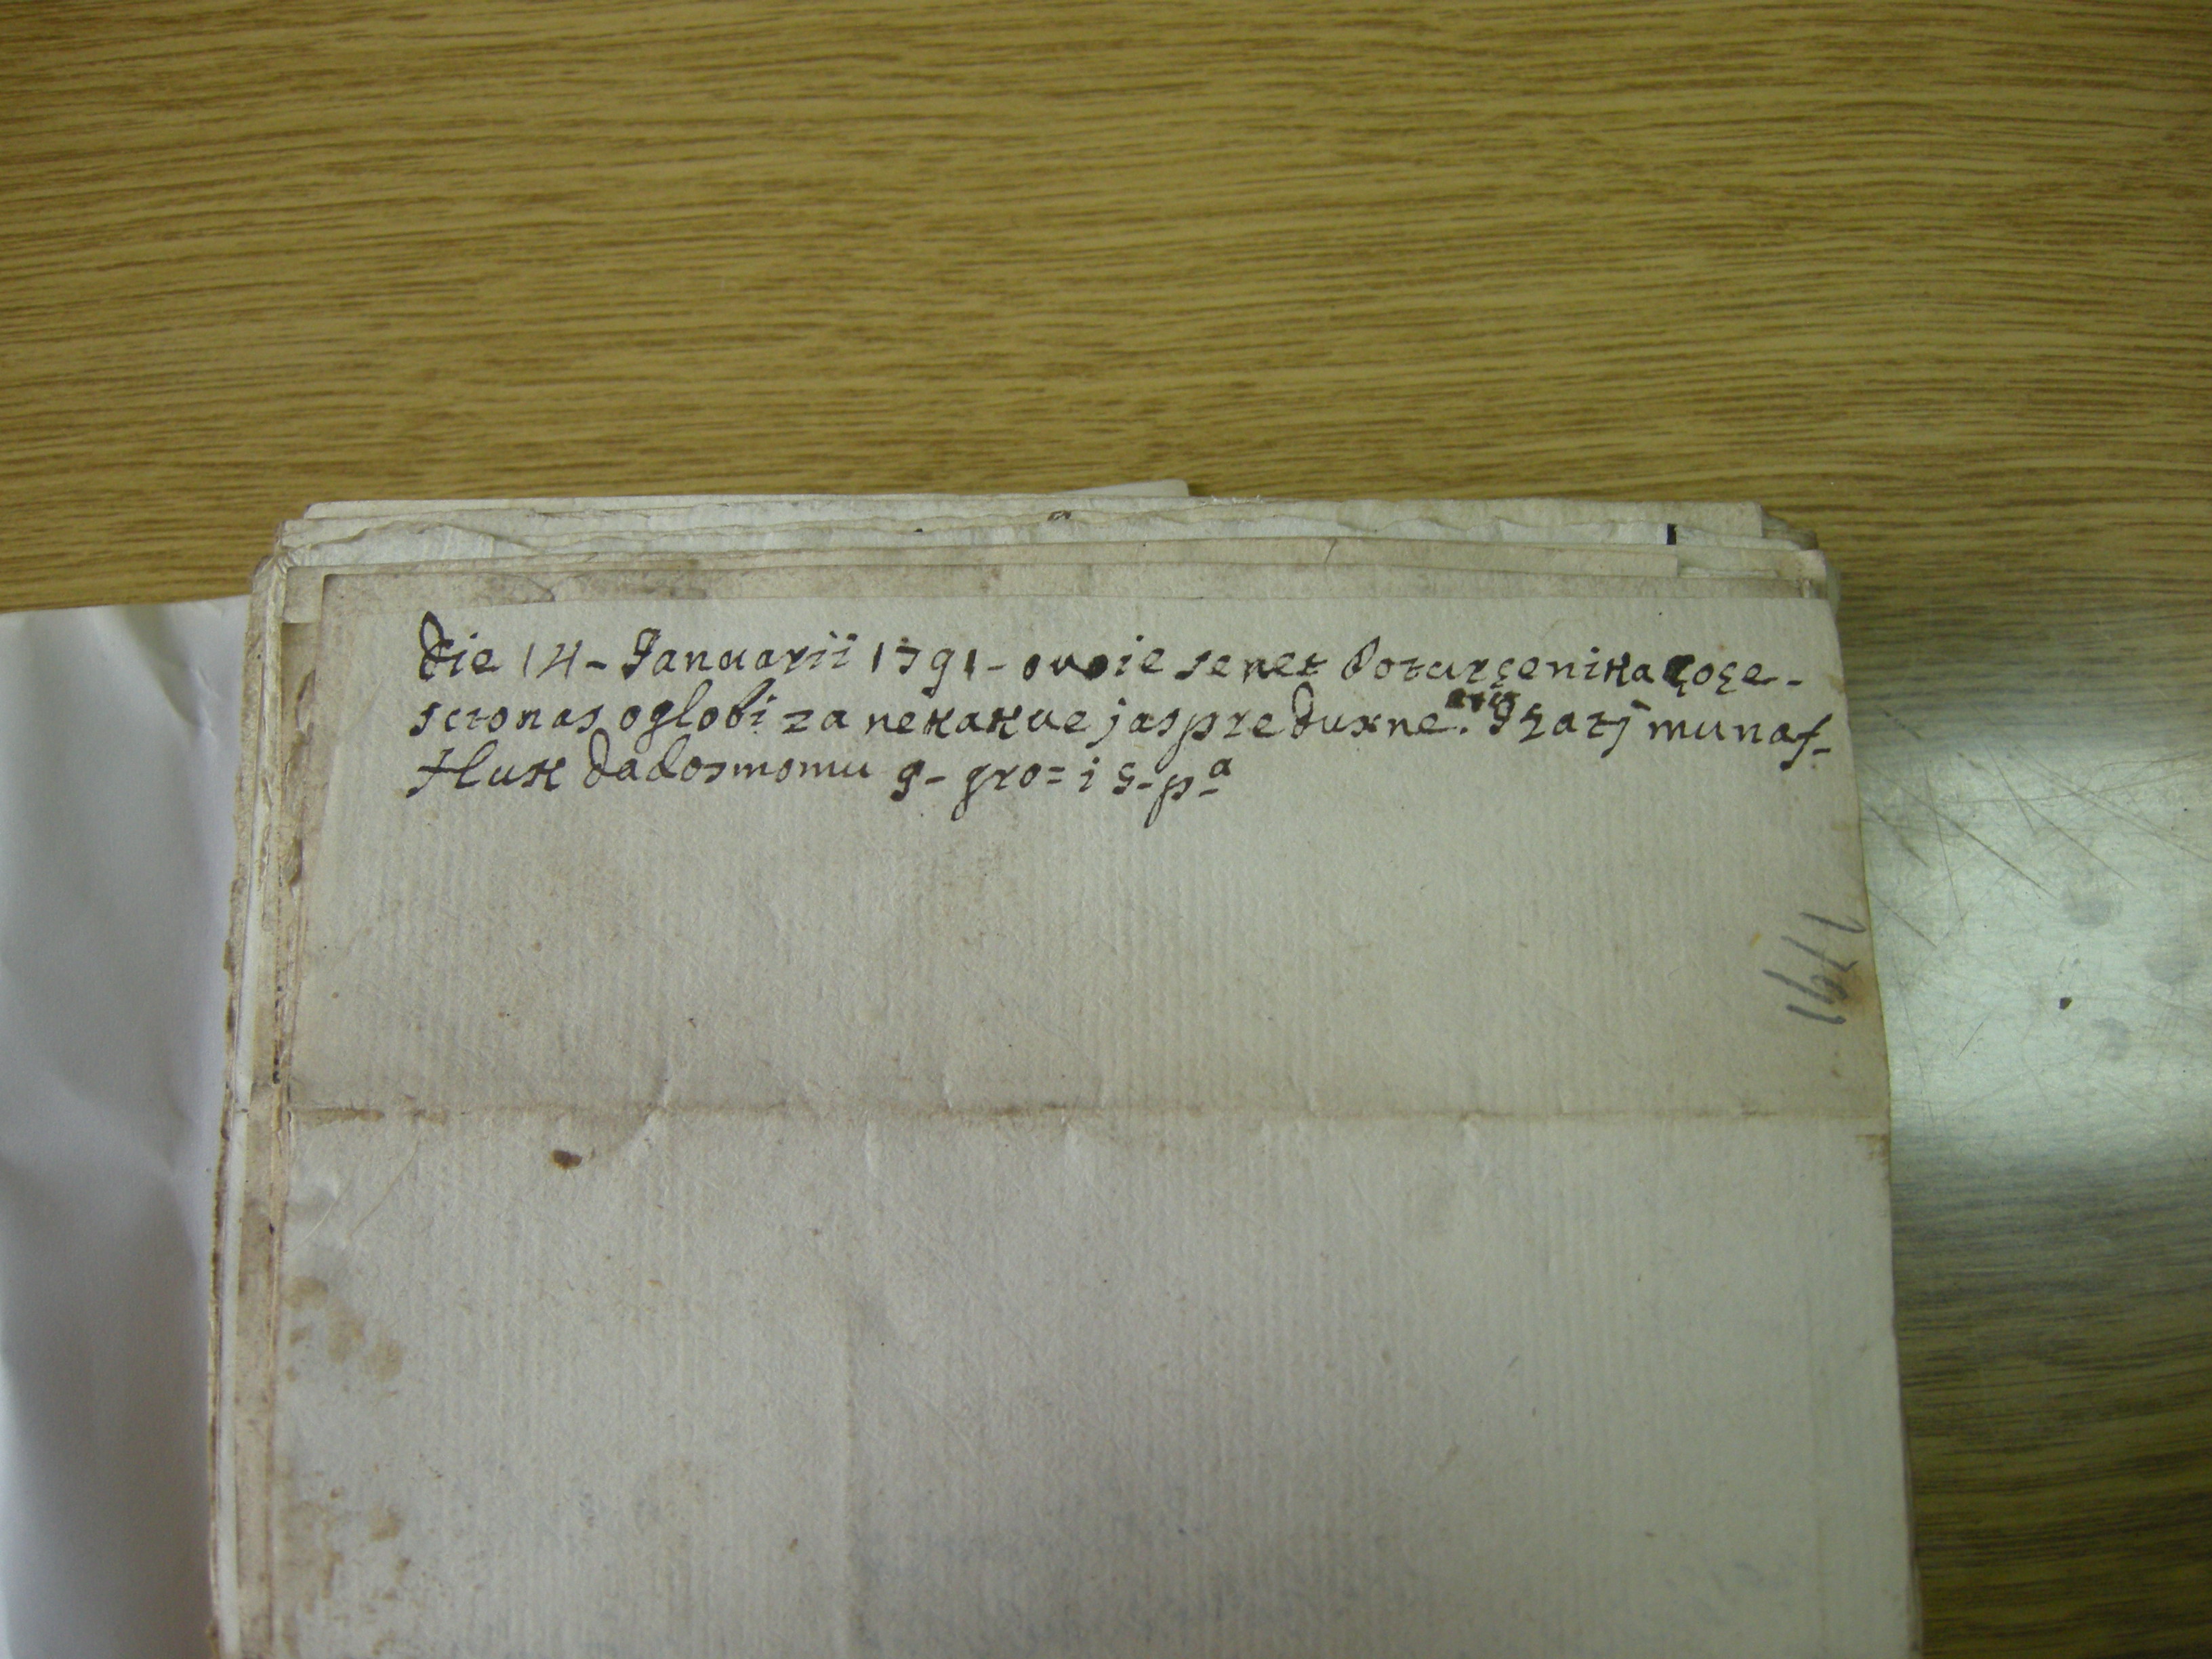 Die 14 - Januarii 1791 - ovoie senet Poturçenika çoçe-
scto nas oglobi za nekakve jaspre duxne. I zatj munaf-
tluk dadosmomu 9 - gro = i 5 - pª
1791